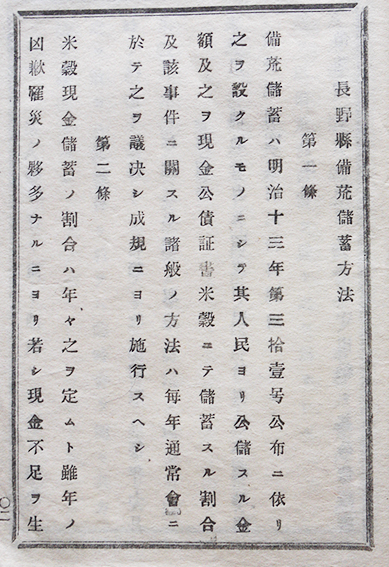 長野縣備荒儲蓄方法
第一條
備荒儲蓄ハ明治十三年第三拾壹号公布ニ依リ
之ヲ設クルモノニシテ其人民ヨリ公儲スル金
額及之ヲ現金公債証書米穀ニテ儲蓄スル割合
及該事件ニ關スル諸般ノ方法ハ毎年通常會ニ
於テ之ヲ議决シ成規ニヨリ施行スヘシ
第二條
米穀現金儲蓄ノ割合ハ年々之ヲ定ムト雖年ノ
凶歉罹災ノ夥多ナルニヨリ若シ現金不足ヲ生